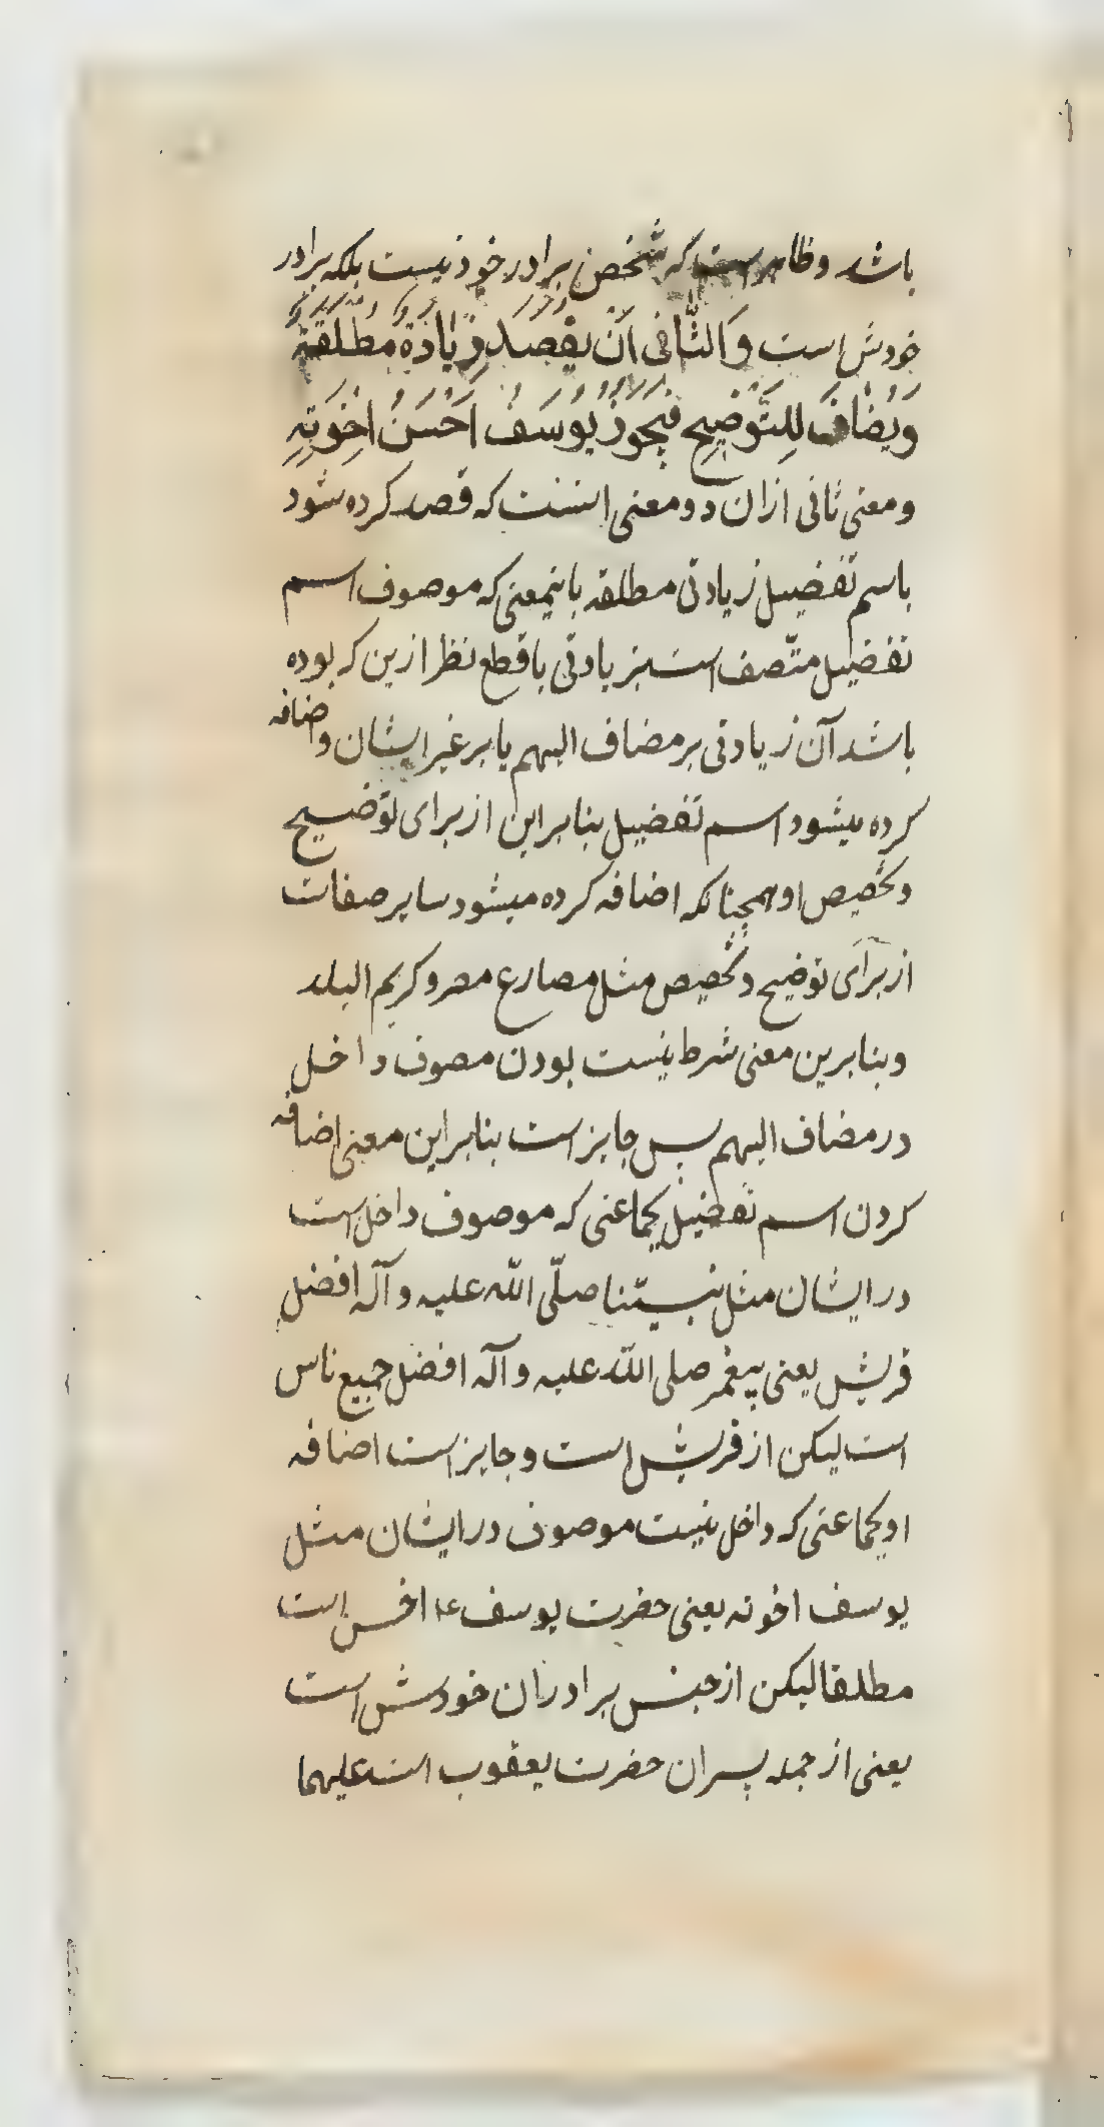 باشد وظاهر است که شخص برادر خود نیست بلکه برادر
خودش است وَالثّانی اَنْ یُقْصَدَ زِیادَةٌ مُطْلَقَةٌ
وَیُضافَ لِلتَّوْضیحِ فَیَجُوزُ یُوسَفُ اَحْسَنُ اِخْوَتِهِ
ومعنی ثانی ازان دو معنی اینست که قصد کرده شود
باسم تفضیل زیادتی مطلقه باینمعنی که موصوف اسم
تفضیل متّصف است بزیادتی با قطع نظر ازین که بوده
باشد آن زیادتی بر مضاف الیهم یا بر غیر ایشان واضافه
کرده میشود اسم تفضیل بنابراین از برای توضیح
وتخصیص او همچنانکه اضافه کرده میشود سایر صفات
از برآی توضیح وتخصیص مثل مصارع مصر وکریم البلد
وبنابرین معنی شرط نیست بودن مصوف داخل
در مضاف الیهم پس جایز است بنابراین معنی اضافه
کردن اسم تفضیل بجماعتی که موصوف داخل است
در ایشان مثل نبیّنا صلّی اللّه علیه وآله افضل
قریش یعنی پیغمبر صلی اللّه علیه وآله افضل جمیع ناس
است لیکن از قریش است وجایز است اضافه
او بجماعتی که داخل نیست موصوف در ایشان مثل
یوسف اخوته یعنی حضرت یوسف ع احسن است
مطلقا لیکن از جنس برادران خودش است
یعنی از جمله پسران حضرت یعقوب است علیهما